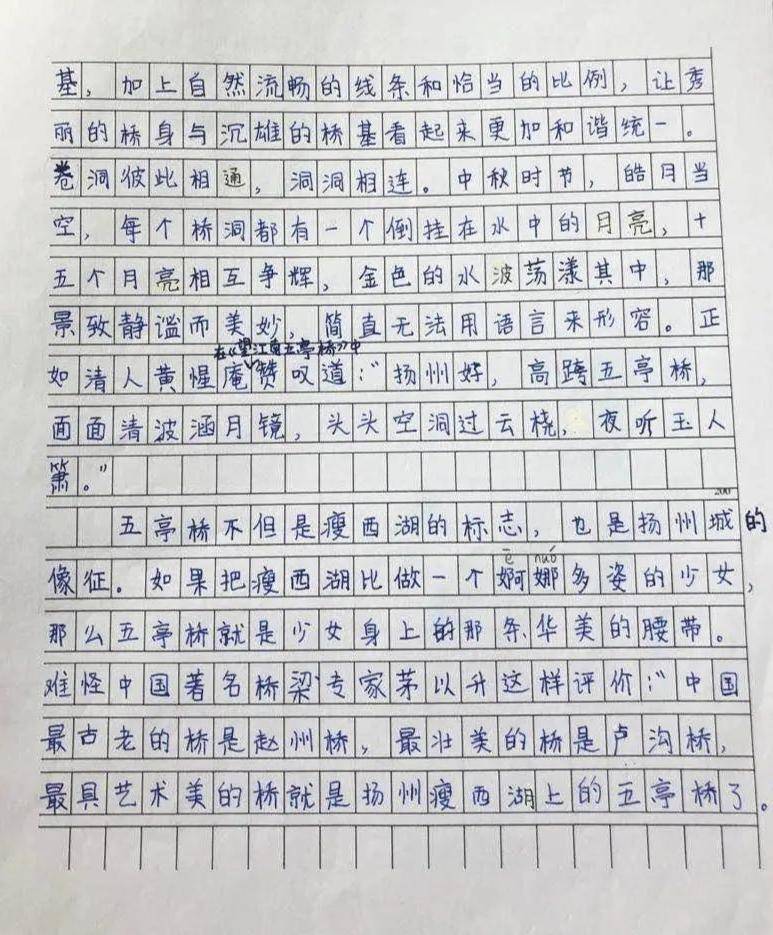 基，加上自然流畅的线条和恰当的比例，让秀
丽的桥身与沉雄的桥基看起来更加和谐统一。
卷洞彼此相通，洞洞相连。中秋时节，皓月当
空，每个桥洞都有一个倒挂在水中的月亮，十
五个月亮相互争辉，金色的水波荡漾其中，那
景致静谧而美妙，简直无法用语言来形容。正
在《望江南五亭桥》中
如清人黄惺庵赞叹道：“扬州好，高跨五亭桥，
面面清波涵月镜，头头空洞过云桡，夜听玉人
箫。”
200
五亭桥不但是瘦西湖的标志，也是扬州城的
ē nuó
像征。如果把瘦西湖比做一个婀娜多姿的少女，
那么五亭桥就是少女身上的那条华美的腰带。
难怪中国著名桥梁专家茅以升这样评价：“中国
最古老的桥是赵州桥，最壮美的桥是卢沟桥，
最具艺术美的桥就是扬州瘦西湖上的五亭桥了。